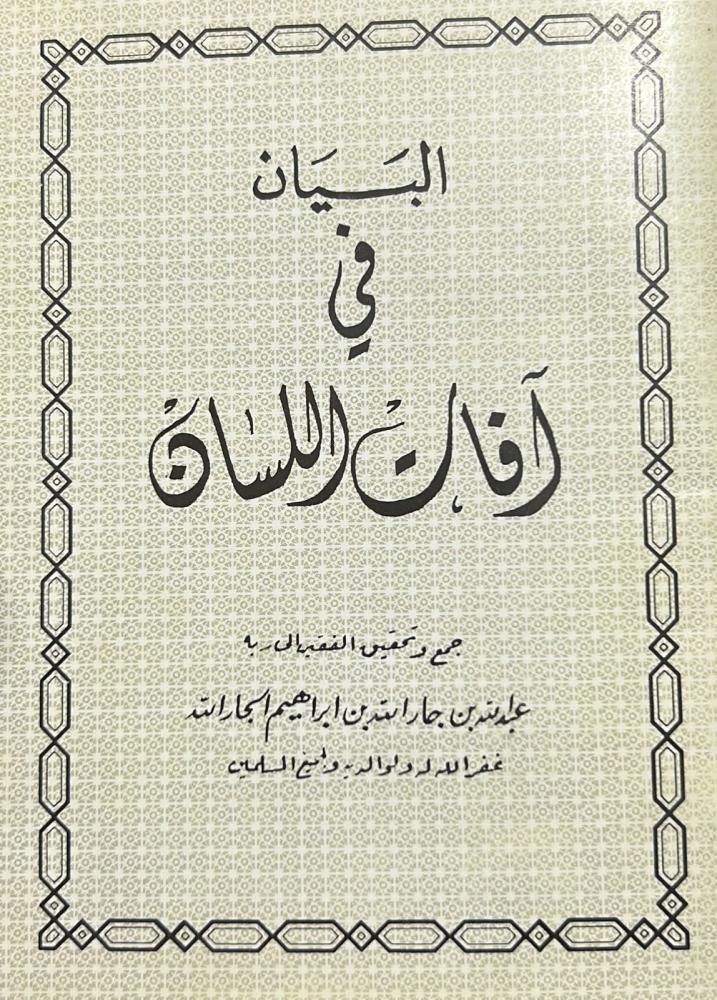 البَيَان
في
آفات اللسان
جمع وتحقيق الفقير إلى ربه
عبدالله بن جارالله بن ابراهيم الجارالله
غفر الله له ولوالديه ولجميع المسلمين